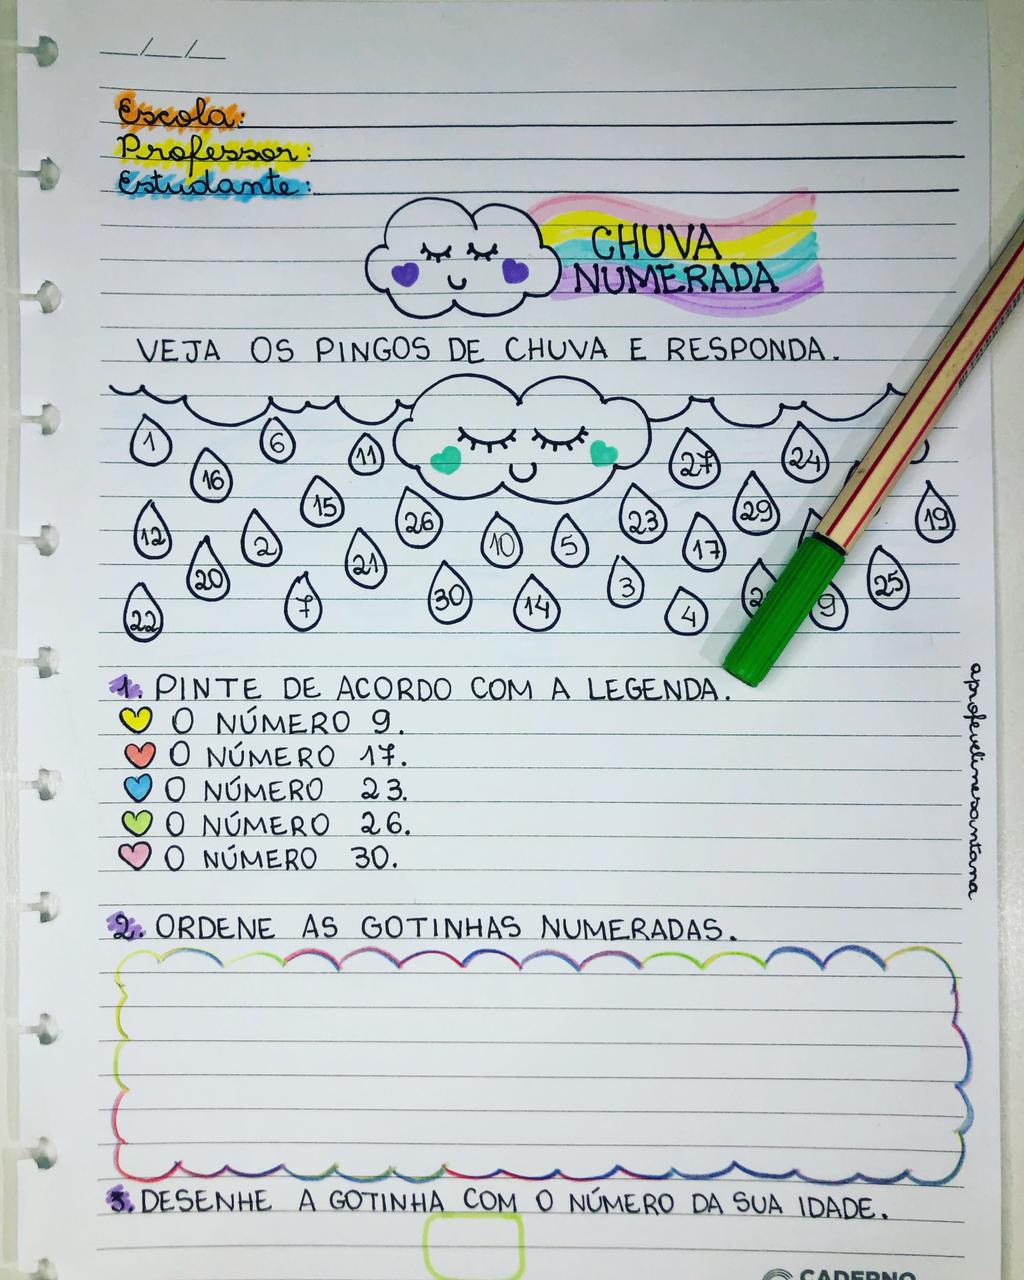 __/__/__
Escola:
Professor:
Estudante:
CHUVA
NUMERADA
VEJA OS PINGOS DE CHUVA E RESPONDA.
1 6 11 27 24
16 15 26 23 29 19
12 2 21 10 5 17
20 7 30 14 3 4 9 25
22
1. PINTE DE ACORDO COM A LEGENDA.
O NÚMERO 9.
O NÚMERO 17.
O NÚMERO 23.
O NÚMERO 26.
O NÚMERO 30.
2. ORDENE AS GOTINHAS NUMERADAS.
3. DESENHE A GOTINHA COM O NÚMERO DA SUA IDADE.
aprofevelinesantana
CADERNO